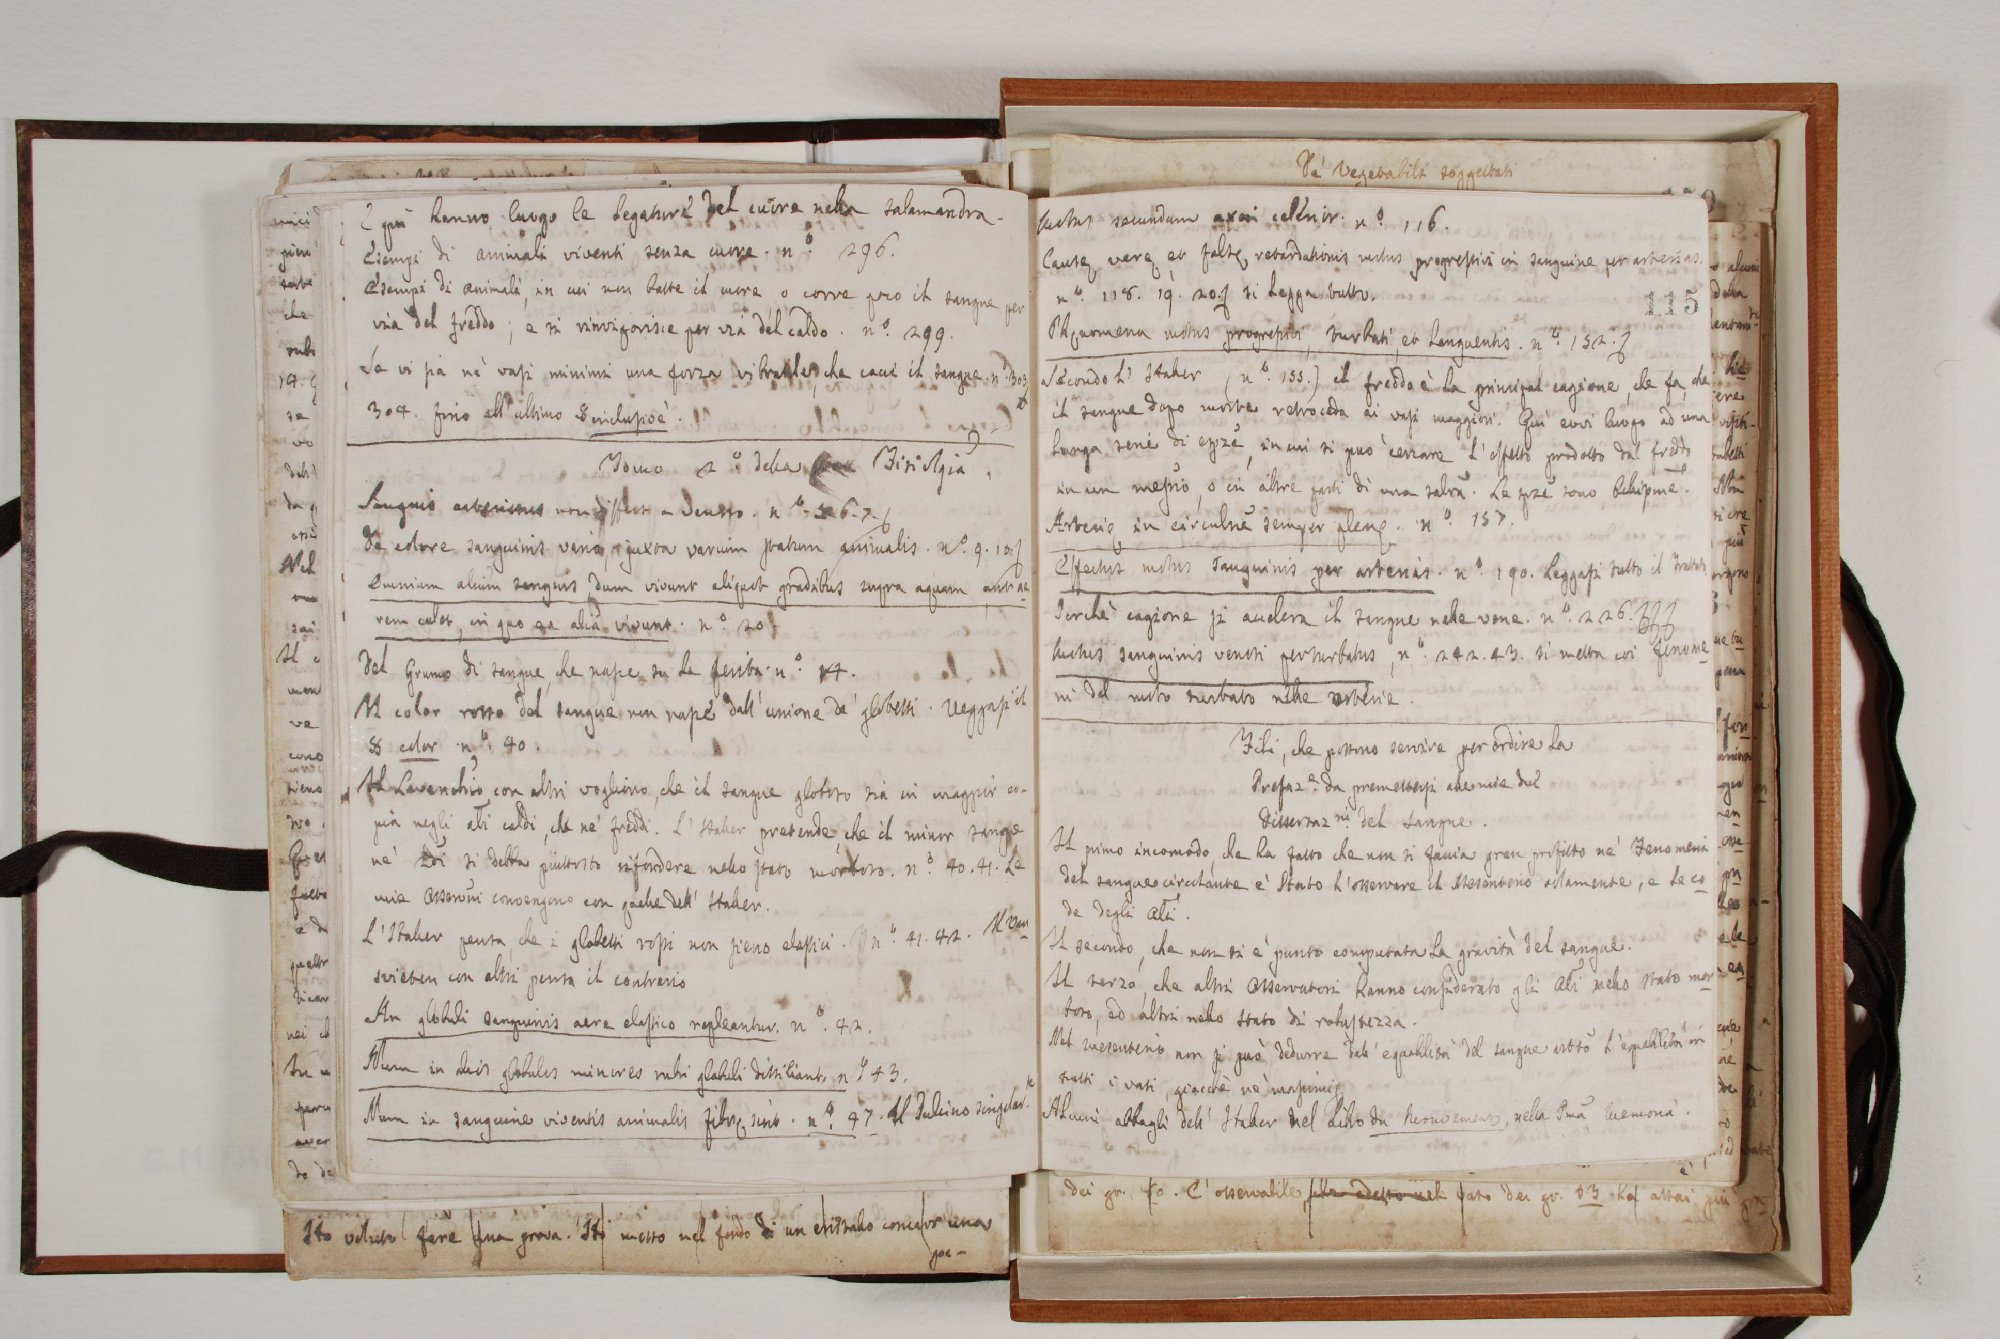 E più hanno luogo le legature del cuore nella salamandra.
Esempi di animali viventi senza cuore. nº 296.
Esempi di animali, in cui non batte il cuore o corre poco il sangue per
via del freddo; e si rinvigorisce per via del caldo. nº. 299.
Se vi sia ne' vasi minimi una forza vibratile, che cacci il sangue nº 303
304. fino all'ultimo § inclusive.
Tomo 2º della Fisiologia.
Sanguis arteriosus non differt a venoso. nº. 5. 6. 7.
De colore sanguinis vario, juxta varium statum animalis. nº. 9. 10.
Omnium alium sanguis, dum vivunt aliquot gradibus supra aquam, aut ae
rem calet, in quo ea alia vivunt. nº. 20.
Del Grumo di sangue, che nasce su la ferita. nº.
Il color rosso del sangue non nasce dall'unione de' globetti. Veggasi il
§ color nº. 40.
Il Levenochio con altri vogliono, che il sangue globoso sia in maggior co-
pia negli ali caldi, che ne' freddi. L'Haller pretende, che il minor sangue
ne' si debba piuttosto rifondere nello stato morboso. nº. 40. 41. Le
mie osservni convengono con quelle dell'Haller.
L'Haller pensa, che i globetti rossi non sieno elastici. nº. 41. 42. Il Van
svieten con altri pensa il contrario
An globuli sanguinis aere elastico repleantur. nº. 42.
Num in sex globulos minores rubri globuli dissiliant. nº 43.
Num in sanguine viventis animalis fibrę sint. nº. 47. Il Pulcino singolar.e
Sto voluto fare una prova. Ho messo nel fondo di un cristallo concavo una
poc-
De' Vegetabili soggettati
Motus secundum axin celerior. nº. 116.
Causę verę et falsę retardationis motus progressivi in sanguine per arterias.
nº. 118. 19. 20. si legga tutto.
115
Phęnomena motus progressivi, turbati, et languentis. nº. 132.
Secondo l'Haller (nº. 133.) il freddo è la principal cagione, che fa, che
il sangue dopo morte retroceda ai vasi maggiori. Quì evvi luogo ad una
lunga serie di spzẽ, in cui si può cercare l'effetto prodotto dal freddo
in un mesrio, o in altre parti di una salrã. Le spzẽ sono bellissime.
Arterię in circulnẽ semper plenę. nº. 137.
Effectus motus sanguinis per arterias. nº. 190. Leggasi tutto il trattato
Perchè cagione si accelera il sangue nelle vene. nº. 226.
Motus sanguinis venosi perturbatus, nº. 242. 43. si metta coi fenome
ni del moto turbato nelle arterie.
Fili, che possono servire per ordire la
Prefaz.e da premettersi alle mie due
Dissertaz.ni del sangue.
Il primo incomodo, che ha fatto che non si faccia gran profitto ne' Fenomeni
del sangue circolante è stato l'osservare il Mesenterio solamente, e le co
de degli ali.
Il secondo, che non si è punto computata la gravità del sangue.
Il terzo, che altri osservatori hanno considerato gli ali nello stato mor
boso, ed altri nello stato di robustezza.
Nel mesenterio non si può dedurre dall'equabilità del sangue l'equabilità in
tutti i vasi, giacchè ne' massimi
Alcuni abbagli dell'Haller nel Libro du Mouvement, nella Pma Memoria.
dei gr. 50. È osservabile, nel vaso dei gr. 53